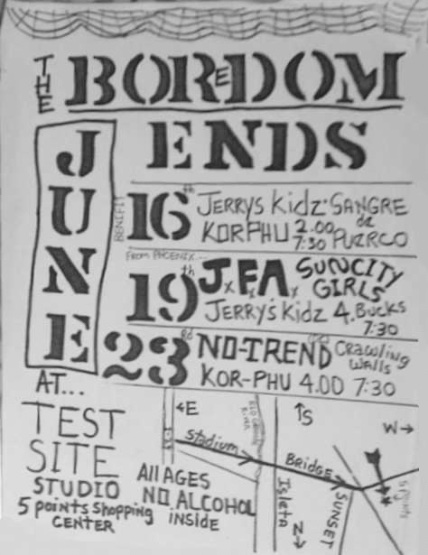 THE BOREDOM
ENDS
JUNE
BENIFIT
16th JERRYS Kidz· SANGRE
de
KORPHU 2.00 PUERCO
7:30
From PHOENIX...
19th J.F.A. SUNCITY
GIRLS
JERRY'S Kidz 4. BUCKS
7:30
23rd NO-TREND Crawling
Walls
KOR-PHU 4.00 7:30
AT...
TEST
SITE
STUDIO
5 points Shopping
CENTER
All AGES
NO ALCOHOL
inside
E
S
W
N
Stadium
BRIDGE
Isleta
SUNSET
5 Points